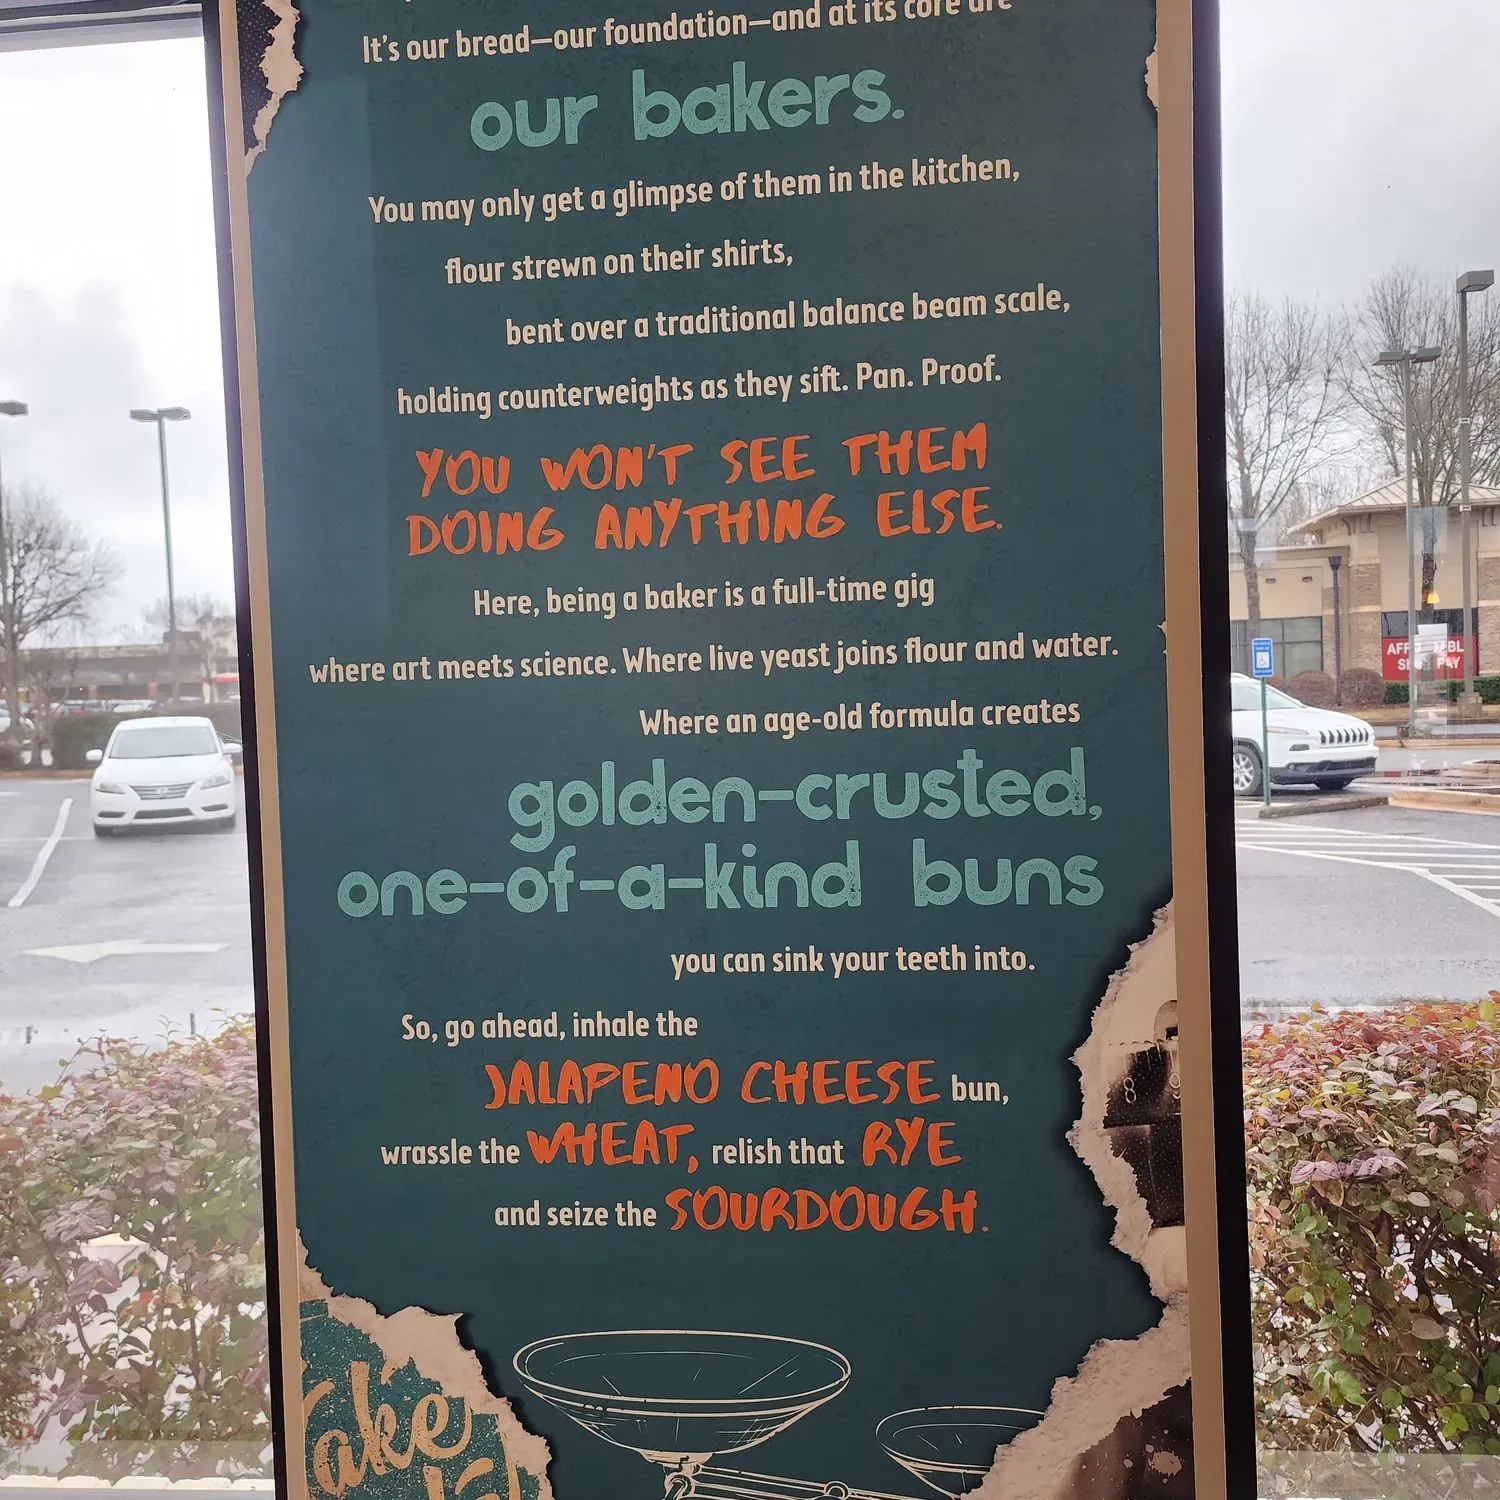 It's our bread—our foundation—and at its core are
our bakers.
You may only get a glimpse of them in the kitchen,
flour strewn on their shirts,
bent over a traditional balance beam scale,
holding counterweights as they sift. Pan. Proof.
YOU WON'T SEE THEM
DOING ANYTHING ELSE.
Here, being a baker is a full-time gig
where art meets science. Where live yeast joins flour and water.
Where an age-old formula creates
golden-crusted,
one-of-a-kind buns
you can sink your teeth into.
So, go ahead, inhale the
JALAPENO CHEESE bun,
wrassle the WHEAT, relish that RYE
and seize the SOURDOUGH.
8 9